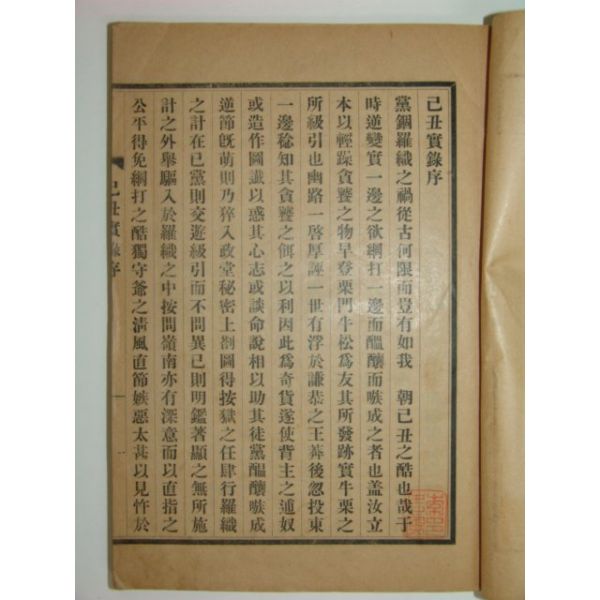 己丑實錄序
黨錮羅織之禍從古何限而豈有如我 朝己丑之酷也哉于
時逆變實一邊之欲網打一邊而醞釀而嗾成之者也盖汝立
本以輕躁貪饕之物早登栗門牛松爲友其所發跡實牛栗之
所級引也幽路一啓厚誣一世有浮於謙恭之王莽後忽投東
一邊稔知其貪饕之餌之以利因此爲奇貨遂使背主之逋奴
或造作圖讖以惑其心志或談命說相以助其徒黨醞釀嗾成
逆節旣萌則乃猝入政堂秘密上劄圖得按獄之任肆行羅織
之計在己黨則交遊級引而不問異己則明鑑著顯之無所施
計之外舉驅入於羅織之中按問嶺南亦有深意而以直指之
公平得免網打之酷獨守爺之淸風直節嫉惡太甚以見忤於
己丑實錄序
一